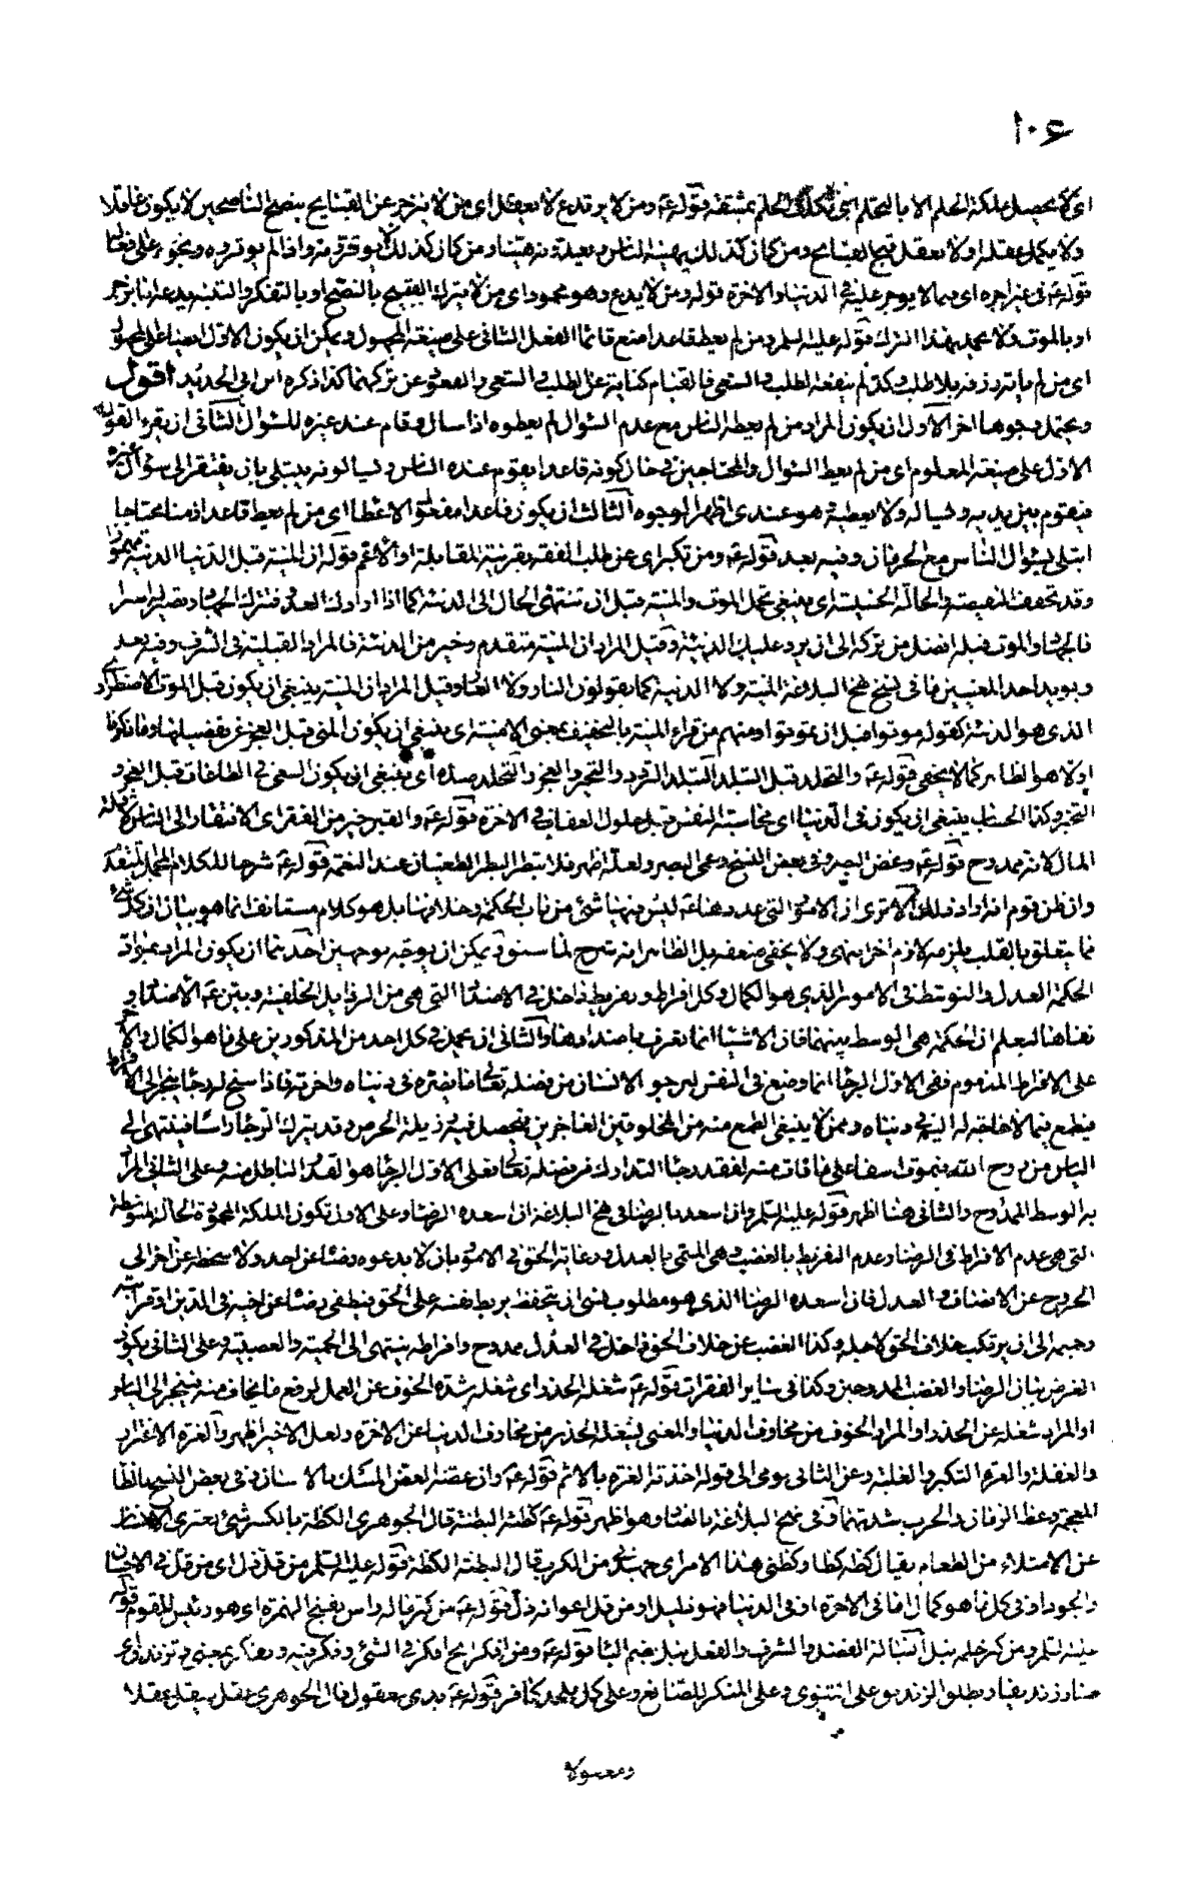 ١٠٦
اى لا يحصل ملكة الحلم الا بالتحلم اى تكلف الحلم بمشقة قوله ع ومن لا يرتدع لا يعقل اى من لا ينزجر عن القبايح بنصح الناصحين لا يكون عاقلا
ولا يكمل عقله او لا يعقل قبح القبايح ومن كان كذلك يهينه الناس ويعدونه هينا ومن كان كذلك لا يوقر فربما اذا لم يوقروه
قوله ع فى غير اجره اى فيما لا يوجر عليه فى الدنيا والاخرة قوله ومن لا يدع وهو محمود اى من لا يترك القبيح بالنصح او بالتفكر والتنبه يدعه
او بالموت ولا يحمد بهذا الترك قوله عليه السلم ومن لم يعط قاعدا منع قائما الفعل الثانى على صيغة المجهول ويمكن ان يكون الاول ايضا على المجهول
اى من لم ياته رزقه بلا طلب وكد لم ينفعه الطلب والسعى فالقيام كناية عن الطلب والسعى والقعود عن تركهما كذا ذكره ابن ابى الحديد اقول
ويحتمل وجوها اخر الاول ان يكون المراد من لم يعطه الناس مع عدم السؤال لم يعطوه اذا سال وقام عند غيره للسؤال الثانى ان يقرء الفعل
الاول على صيغة المعلوم اى من لم يعط السؤال والمحتاجين فى حال كونه قاعدا يقوم عنده الناس ويسالونه يبتلى بان يفتقر الى سؤال غيره
فيقوم بين يديه ويساله ولا يعطيه وهو عندى اظهر الوجوه الثالث ان يكون قاعدا مفعول الاعطا اى من لم يعط قاعدا زمنا محتاجا
ابتلى بسؤال الناس مع الحرمان وفيه بعد قوله ع ومن تكبر اى عن طلب الفقه بقرينة المقابلة او الاعم قوله ان المنية قبل الدنيا الدنية مهموز
وقد تخفف النقيصة والحالة الخسيسة اى ينبغى تحمل الموت والمنية قبل ان تنتهى الحال الى الدنية كما اذا ارادك العدو فتترك الجهاد وتصير له اسيرا
فالجهاد والموت قبله افضل من تركه الى ان يرد عليك الدنية وقيل المراد ان المنية متقدم وخير من الدنية فالمراد القبلية فى الشرف وفيه بعد
ويويد احد المعنيين ما فى نسخ نهج البلاغة المنية ولا الدنية كما يقولون النار ولا العار وقيل المراد ان المنية ينبغى ان يكون قبل الموت الاضطرارى
الذى هو الدنية كقوله موتوا قبل ان تموتوا ومنهم من قراء المنية بالتخفيف بمعنى الامنية اى ينبغى ان يكون المنى قبل العجز عن تحصيلها وما ذكرنا
اولا هو الظاهر كما لا يخفى قوله ع والتجلد قبل التبلد التبلد التردد والتحير والعجز والتجلد ضده اى ينبغى ان يكون السعى فى الطاعات قبل العجز و
التحير وكذا الحساب ينبغى ان يكون فى الدنيا اى محاسبة النفس قبل حلول العقاب فى الاخرة قوله ع والقبر خير من الفقر اى الافتقار الى الناس لا قلة
المال لانه ممدوح قوله ع وغض البصر وفى بعض النسخ وعمى البصر ولعله اظهر فلا تبطر البطر الطغيان عند النعمة قوله ع شرحا للكلام المجمل
وان ظن قوم انه اراد ذلك الا ترى ان الامور التى عددها ع ليس فيها شئ من باب الحكمة وخلافها بل هو كلام مستانف انما هو بيان ان كل شئ
مما يتعلق بالقلب يلزمه لازم اخر انتهى ولا يخفى ضعفه بل الظاهر انه شرح لما سبق ويمكن ان يوجه بوجهين احدهما ان يكون المراد بمواد
الحكمة العدل والتوسط فى الامور الذى هو الكمال وكل افراط وتفريط داخل فى الاضداد التى هى من الرذايل الخلقية ويبين ع الاضداد و
نفاها ليعلم ان الحكمة هى الوسط بينهما فان الاشياء انما تعرف باضدادها والثانى ان يحمل فى كل احد من المذكورين على ما هو الكمال والاخر
على الافراط المذموم فعلى الاول الرجا انما وضع فى النفس ليرجو الانسان من فضله تعالى ما يضره فى دنياه واخرته فاذا سنح له رجا ينجر الى الافراط
فيطمع فيما لا حاجة له اليه فى دنياه وممن لا ينبغى الطمع منه من المخلوقين العاجزين فيحصل فيه رذيلة الحرص وقد يترك الرجا راسا فينتهى الى
الياس من روح الله فيموت اسفا على ما فات منه لفقد رجا التدارك من فضله تعالى فعلى الاول الرجا هو القدر الباطل منه وعلى الثانى المراد
به الوسط الممدوح والثانى هنا اظهر قوله عليه السلم وان اسعد بالرضا فى نهج البلاغة ان اسعده الرضا وعلى الاول تكون الملكة المحمودة الحالة المتوسطة
التى هى عدم الافراط فى الرضا وعدم التفريط بالغضب وهى المسمى بالعدل ورعاية الحق فى الامور بان لا يدعوه رضا عن احد ولا سخط عن اخر الى
الخروج عن الانصاف والعدل فان اسعده الرضا الذى هو مطلوب نسى ان يتحفظ بربط نفسه على الحق فيطغى رضا عن اخيه فى الدين او قرابته
وحميمه الى ان يرتكب خلاف الحق لاجله وكذا الغضب عن خلاف الحق داخل فى العدل ممدوح وافراطه ينتهى الى الحمية والعصبية وعلى الثانى يكون
الغرض بيان الرضا والغضب الممدوحين وكذا فى ساير الفقرات قوله ع شغله الحذر اى شغله شدة الخوف عن العمل لرفع ما يخاف منه فينجر الى الياس
او المراد شغله عن الحذر او المراد الخوف من مخاوف الدنيا والمعنى يشغله الحذر من مخاوف الدنيا عن الاخرة ولعل الاخير اظهر والغرة الاغترار
والغفلة والعزة التكبر والغلبة وعن الثانى يومى الى قوله اخذته العزة بالاثم قوله ع وان عضته العض المسك بالاسنان وفى بعض النسخ بالظا
المعجمة وعظ الزمان والحرب شدتهما وفى نهج البلاغة بالضاد وهو اظهر قوله ع كظته البطنة قال الجوهرى الكظة بالكسر شئ يعترى الانسان
عن الامتلاء من الطعام يقال كظه كظا وكظنى هذا الامر اى جهدنى من الكرب قال البطنة الكظة قوله عليه السلم من قل ذل اى من قل فى الاحسان
والجود او فى كل ما هو كمال اما فى الاخرة او فى الدنيا فهو ذليل او من قل اعوانه ذل قوله ع من كثر ماله راس بفتح الهمزة اى هو رئيس للقوم قوله
عليه السلم ومن كثر حلمه نبل النبالة الفضل والشرف والفعل نبل بضم البا قوله ع ومن افكر يح افكر فى الشئ وفكر فيه وتفكر بمعنى تزندق اى
صار زنديقا ويطلق الزنديق على الثنوى وعلى المنكر للصانع وعلى كل ملحد كافر قوله ع بدى بعقول قال الجوهرى عقل يعقل عقلا
ومعسولا